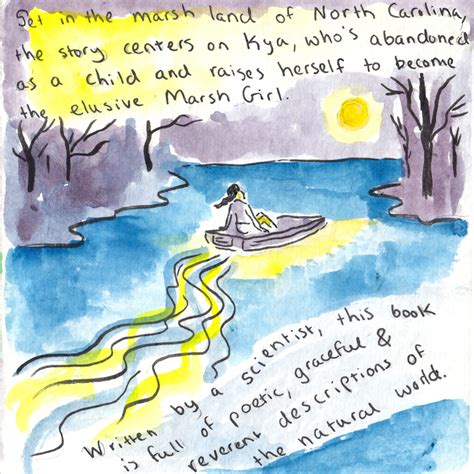 Set in the marsh land of North Carolina,
the story centers on Kya, who's abandoned
as a child and raises herself to become
the elusive Marsh Girl.
Written by a scientist, this book
is full of poetic, graceful &
reverent descriptions of
the natural world.